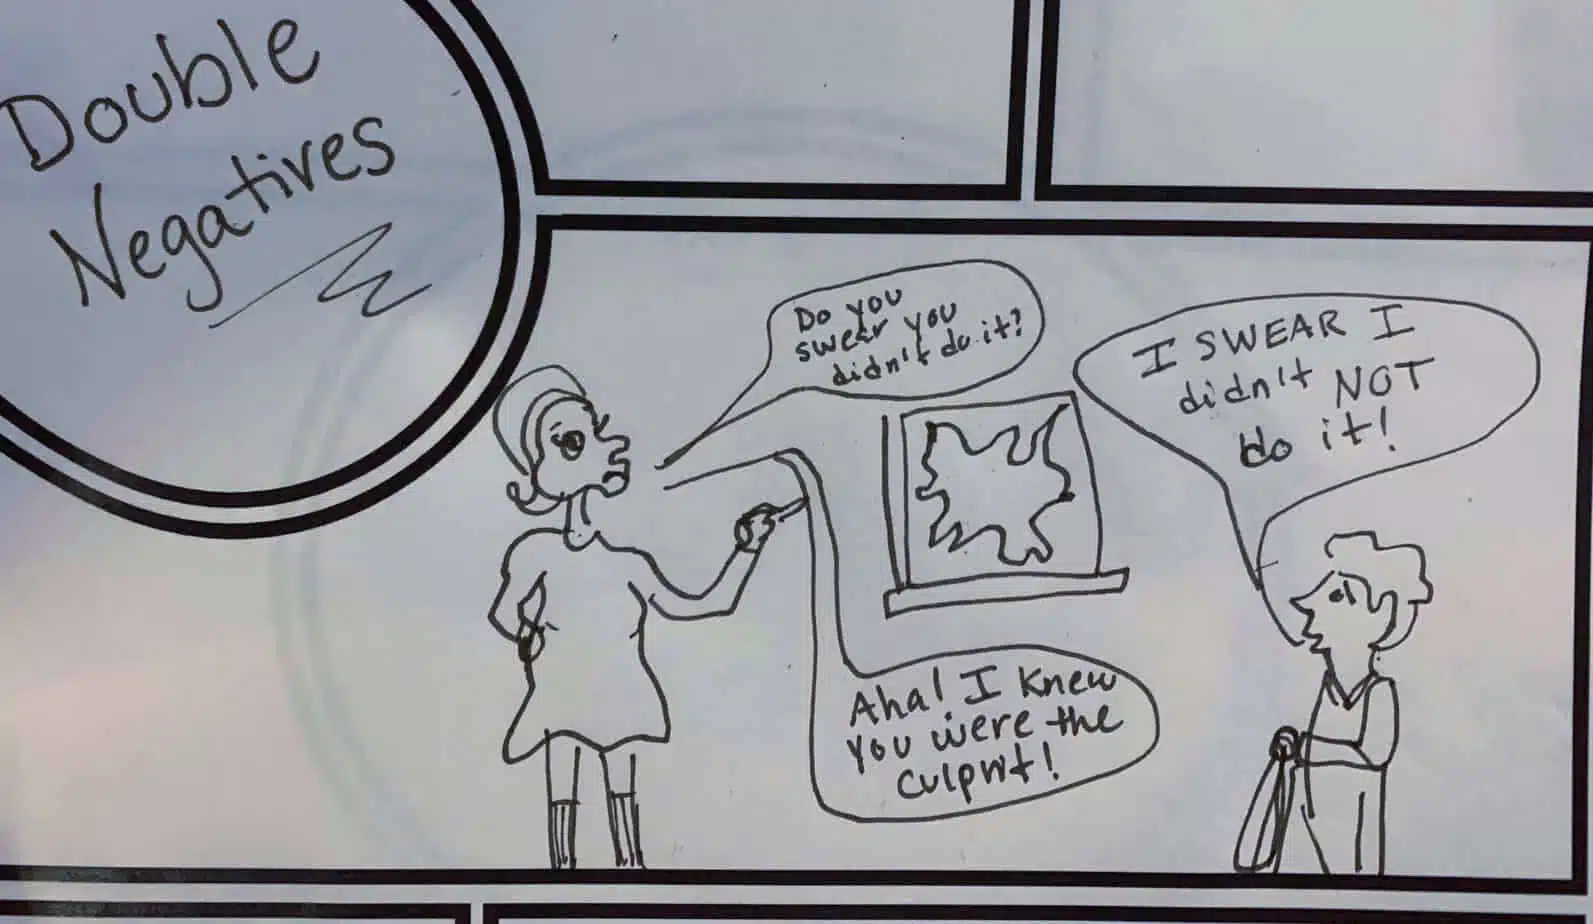 Double
Negatives
Do you
swear you
didn't do it?
I SWEAR I
didn't NOT
do it!
Aha! I knew
you were the
culprit!